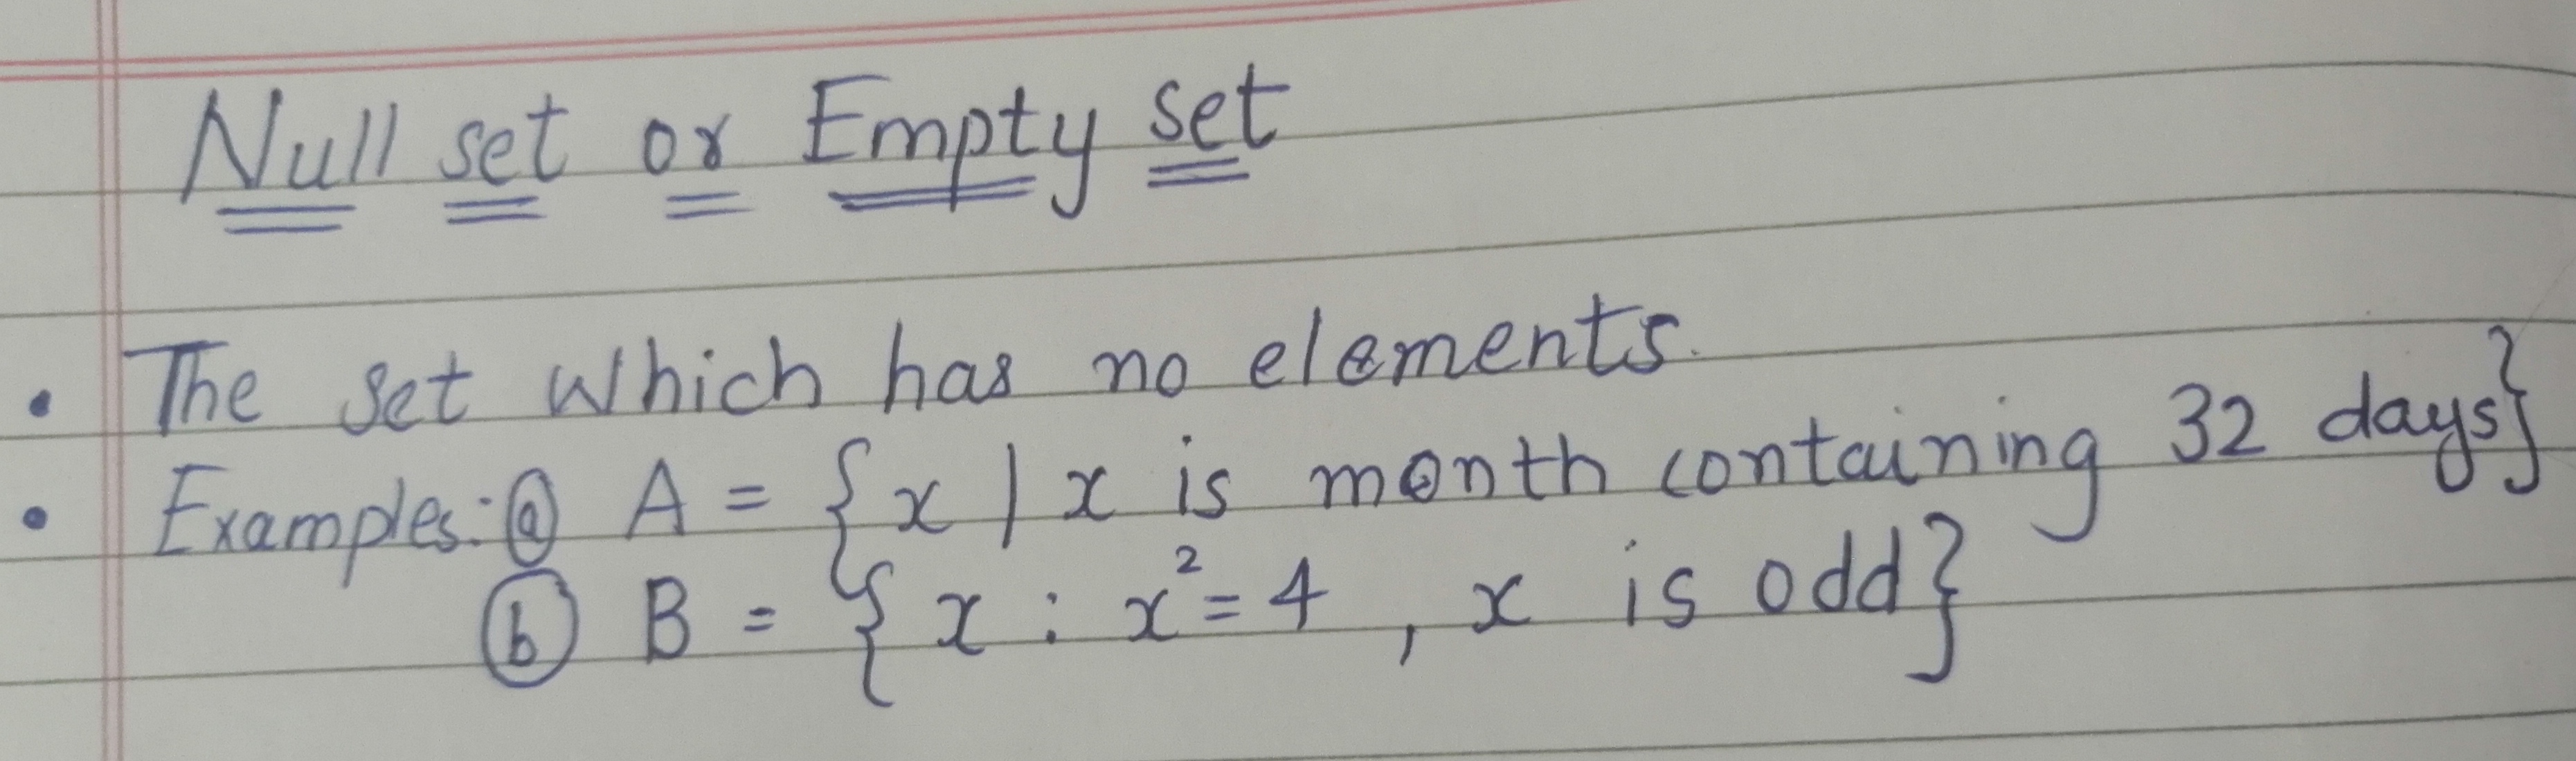 Null set or Empty set
• The set which has no elements.
• Examples: ⓐ A = {x | x is month containing 32 days}
ⓑ B = {x : x² = 4 , x is odd}